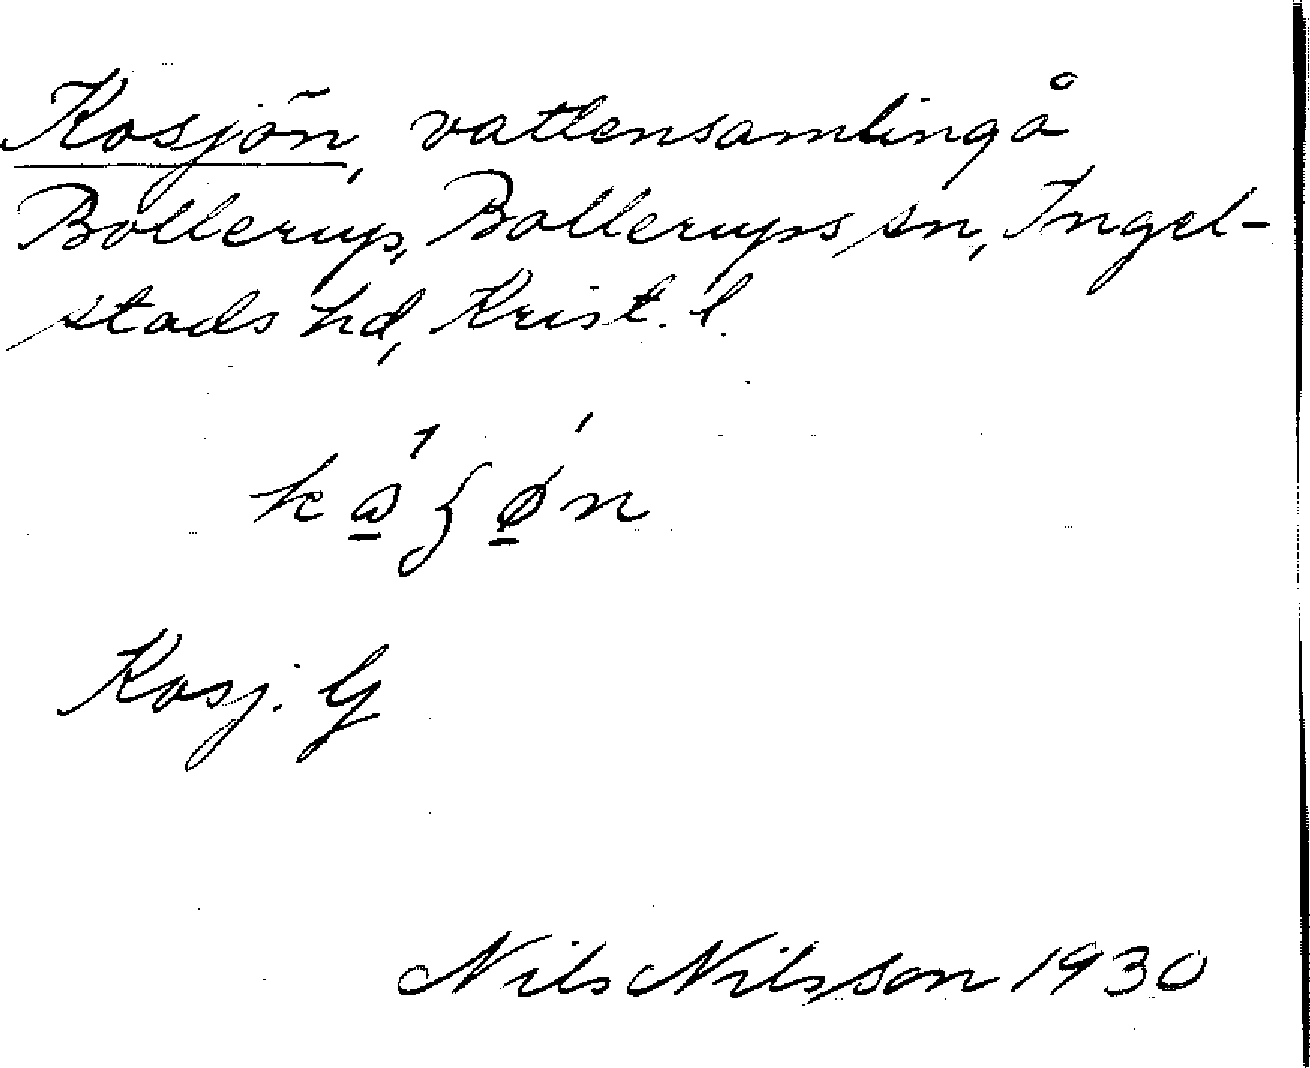 Kosjön, vattensamling å
Bollerup, Bollerups sn, Ingel-
stads hd, Krist. l.
Kosj. G
Nils Nilsson 1930